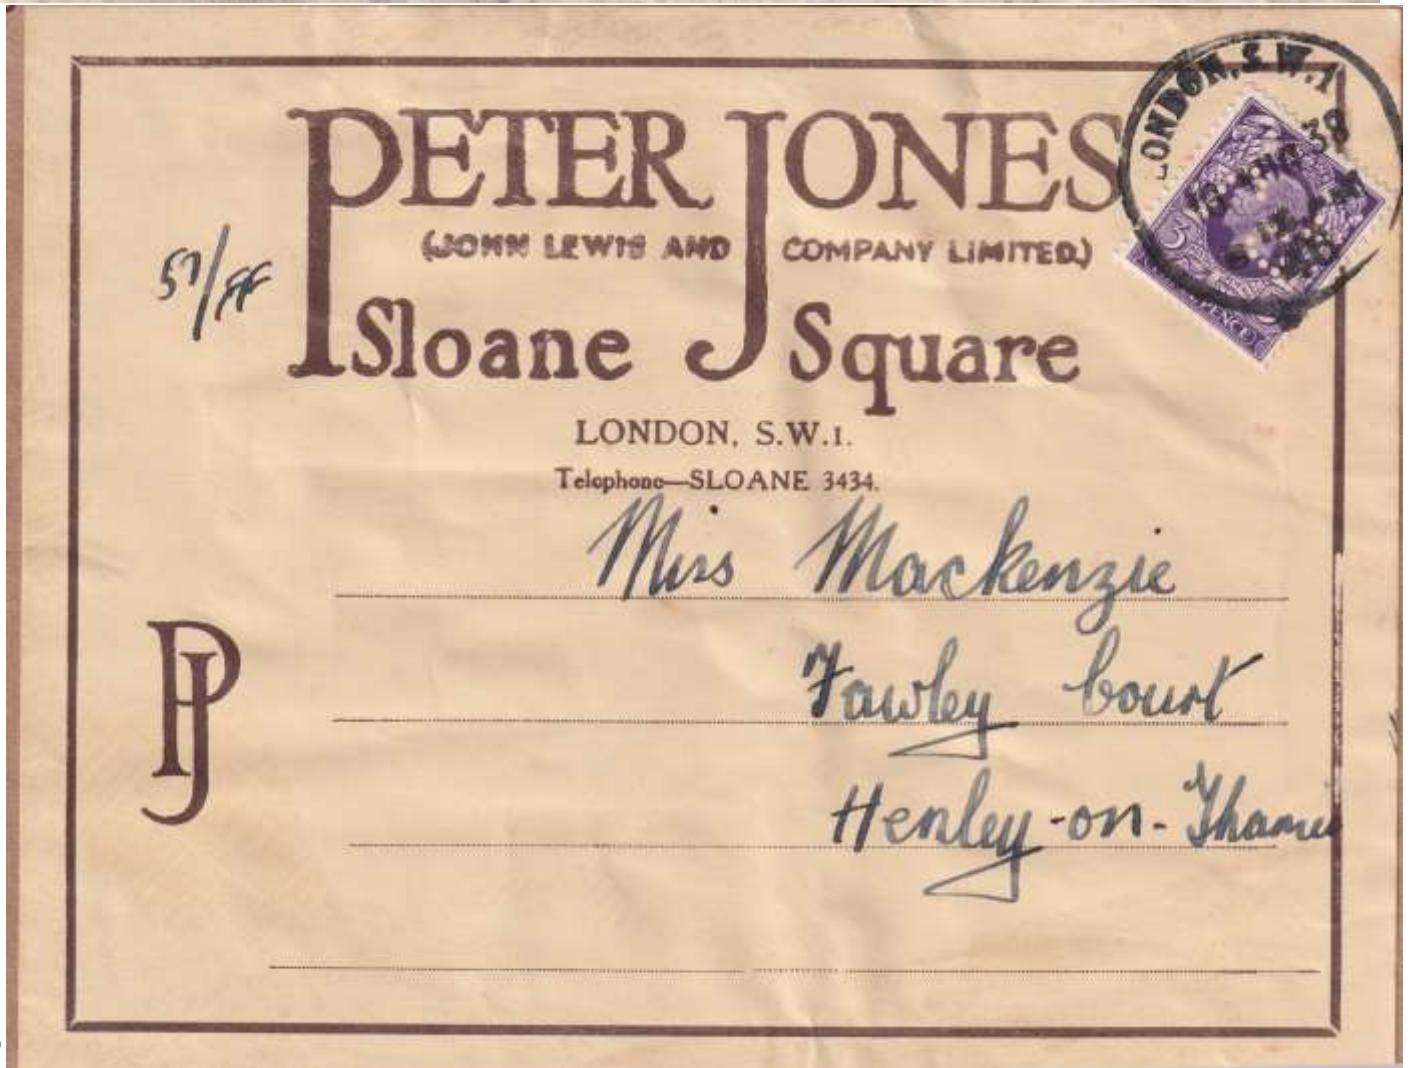 PETER JONES
(JOHN LEWIS AND COMPANY LIMITED.)
Sloane Square
LONDON, S.W.1.
Telephone—SLOANE 3434.
LONDON, S.W.1
38
3
PENCE
57/FF
Miss Mackenzie
Fawley Court
Henley-on-Thames
PJ